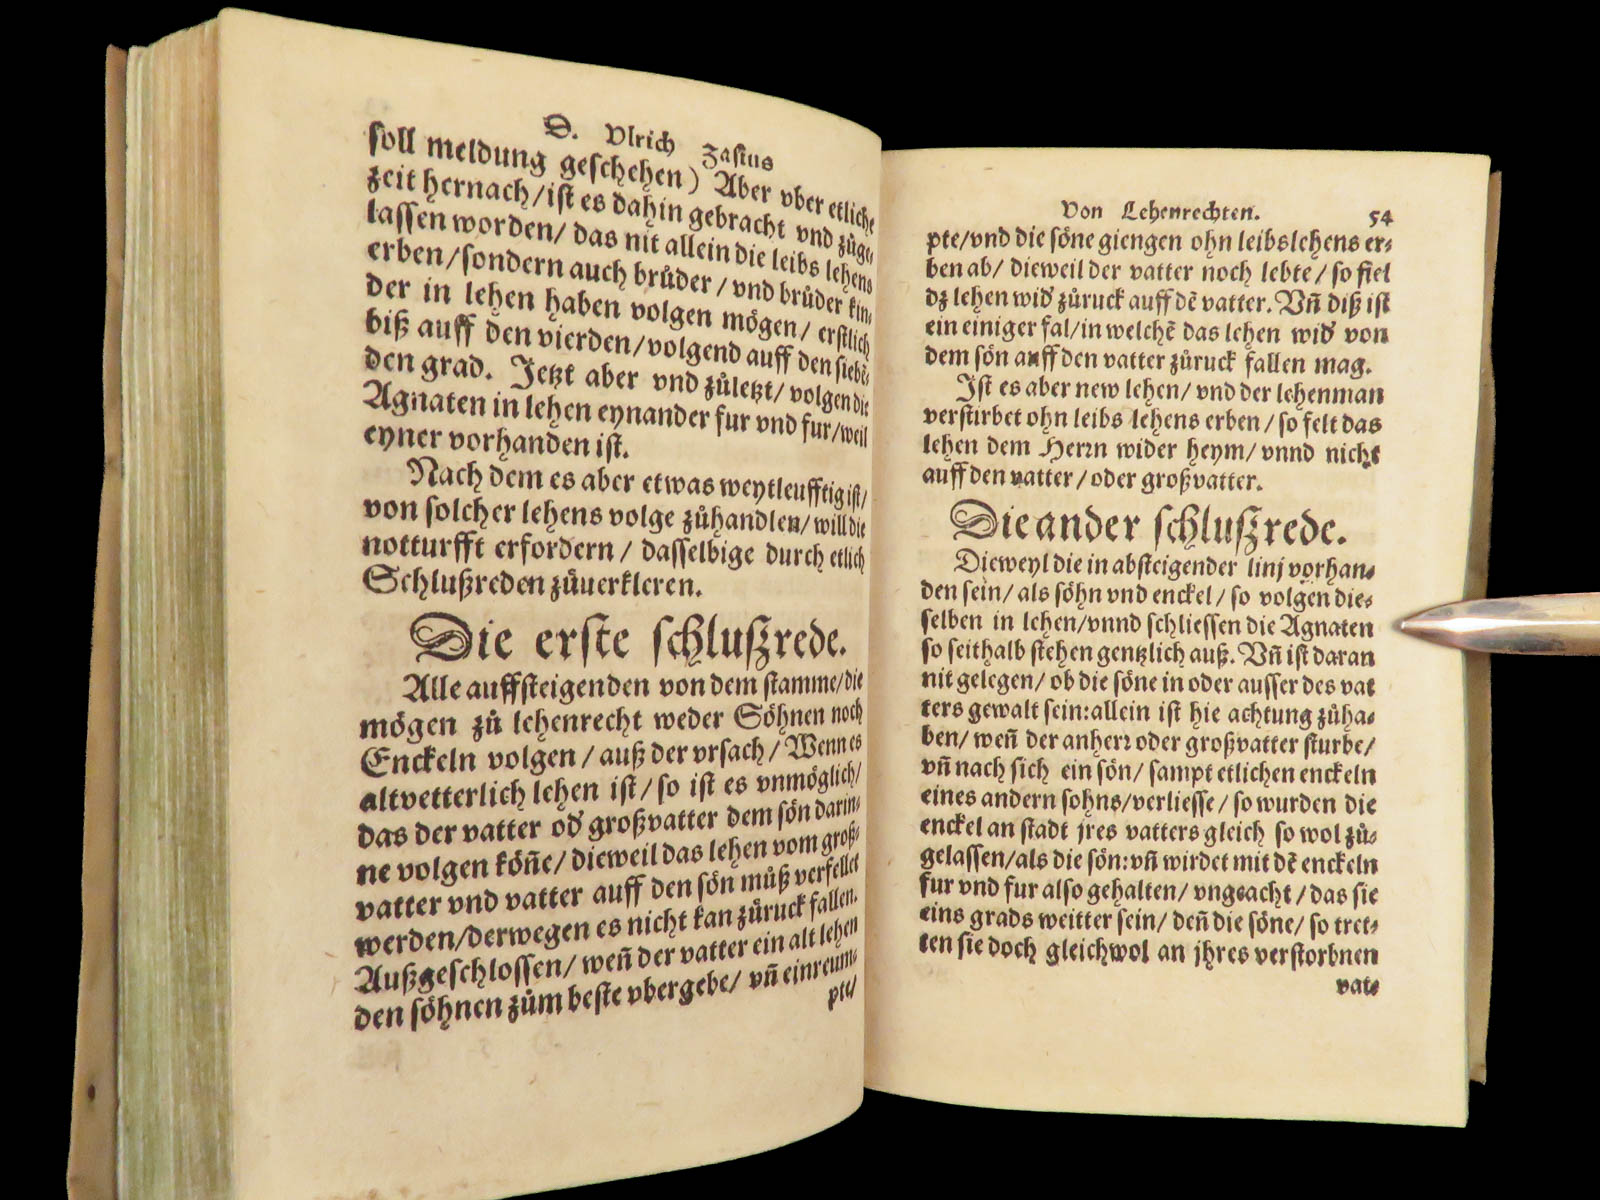 D. Vlrich Zasius
soll meldung geschehen) Aber vber etliche
zeit hernach/ist es dahin gebracht vnd zůge-
lassen worden/ das nit allein die leibs lehens
erben/sondern auch brůder/vnd brůder kin-
der in lehen haben volgen mögen/ erstlich
biß auff den vierden/volgend auff den siebẽ-
den grad. Jetzt aber vnd zůletzt/ volgen die
Agnaten in lehen eynander fur vnd fur/weil
eyner vorhanden ist.
Nach dem es aber etwas weytleufftig ist/
von solcher lehens volge zůhandlen/will die
notturfft erfordern/ dasselbige durch etlich
Schlußreden zůuerkleren.
Die erste schlußrede.
Alle auffsteigenden von dem stamme/die
mögen zů lehenrecht weder Söhnen noch
Enckeln volgen/auß der vrsach/Wenn es
altvetterlich lehen ist/so ist es vnmöglich/
das der vatter od' großvatter dem sön darin-
ne volgen köñe/dieweil das lehen vom groß-
vatter vnd vatter auff den sön můß verfellet
werden/derwegen es nicht kan zůruck fallen.
Außgeschlossen/ weñ der vatter ein alt lehen
den söhnen zům beste vbergebe/ vñ einreum-
pte/
Von Lehenrechten. 54
pte/vnd die söne giengen ohn leibslehens er-
ben ab/ dieweil der vatter noch lebte/so fiel
dz lehen wid' zůruck auff dẽ vatter. Vñ diß ist
ein einiger fal/in welchẽ das lehen wid' von
dem sön auff den vatter zůruck fallen mag.
Jst es aber new lehen/ vnd der lehenman
verstirbet ohn leibs lehens erben/so felt das
lehen dem Herrn wider heym/ vnnd nicht
auff den vatter/oder großvatter.
Die ander schlußrede.
Dieweyl die in absteigender linj vorhan-
den sein/ als söhn vnd enckel/ so volgen die-
selben in lehen/vnnd schliessen die Agnaten
so seithalb stehen gentzlich auß. Vñ ist daran
nit gelegen/ ob die söne in oder ausser des vat
ters gewalt sein:allein ist hie achtung zůha-
ben/ weñ der anherr oder großvatter sturbe/
vñ nach sich ein sön/ sampt etlichen enckeln
eines andern sohns/verliesse/so wurden die
enckel an stadt jres vatters gleich so wol zů-
gelassen/als die sön:vñ wirdet mit dẽ enckeln
fur vnd fur also gehalten/ vngeacht/das sie
eins grads weitter sein/ deñ die söne/so tret-
ten sie doch gleichwol an jhres verstorbnen
vat-